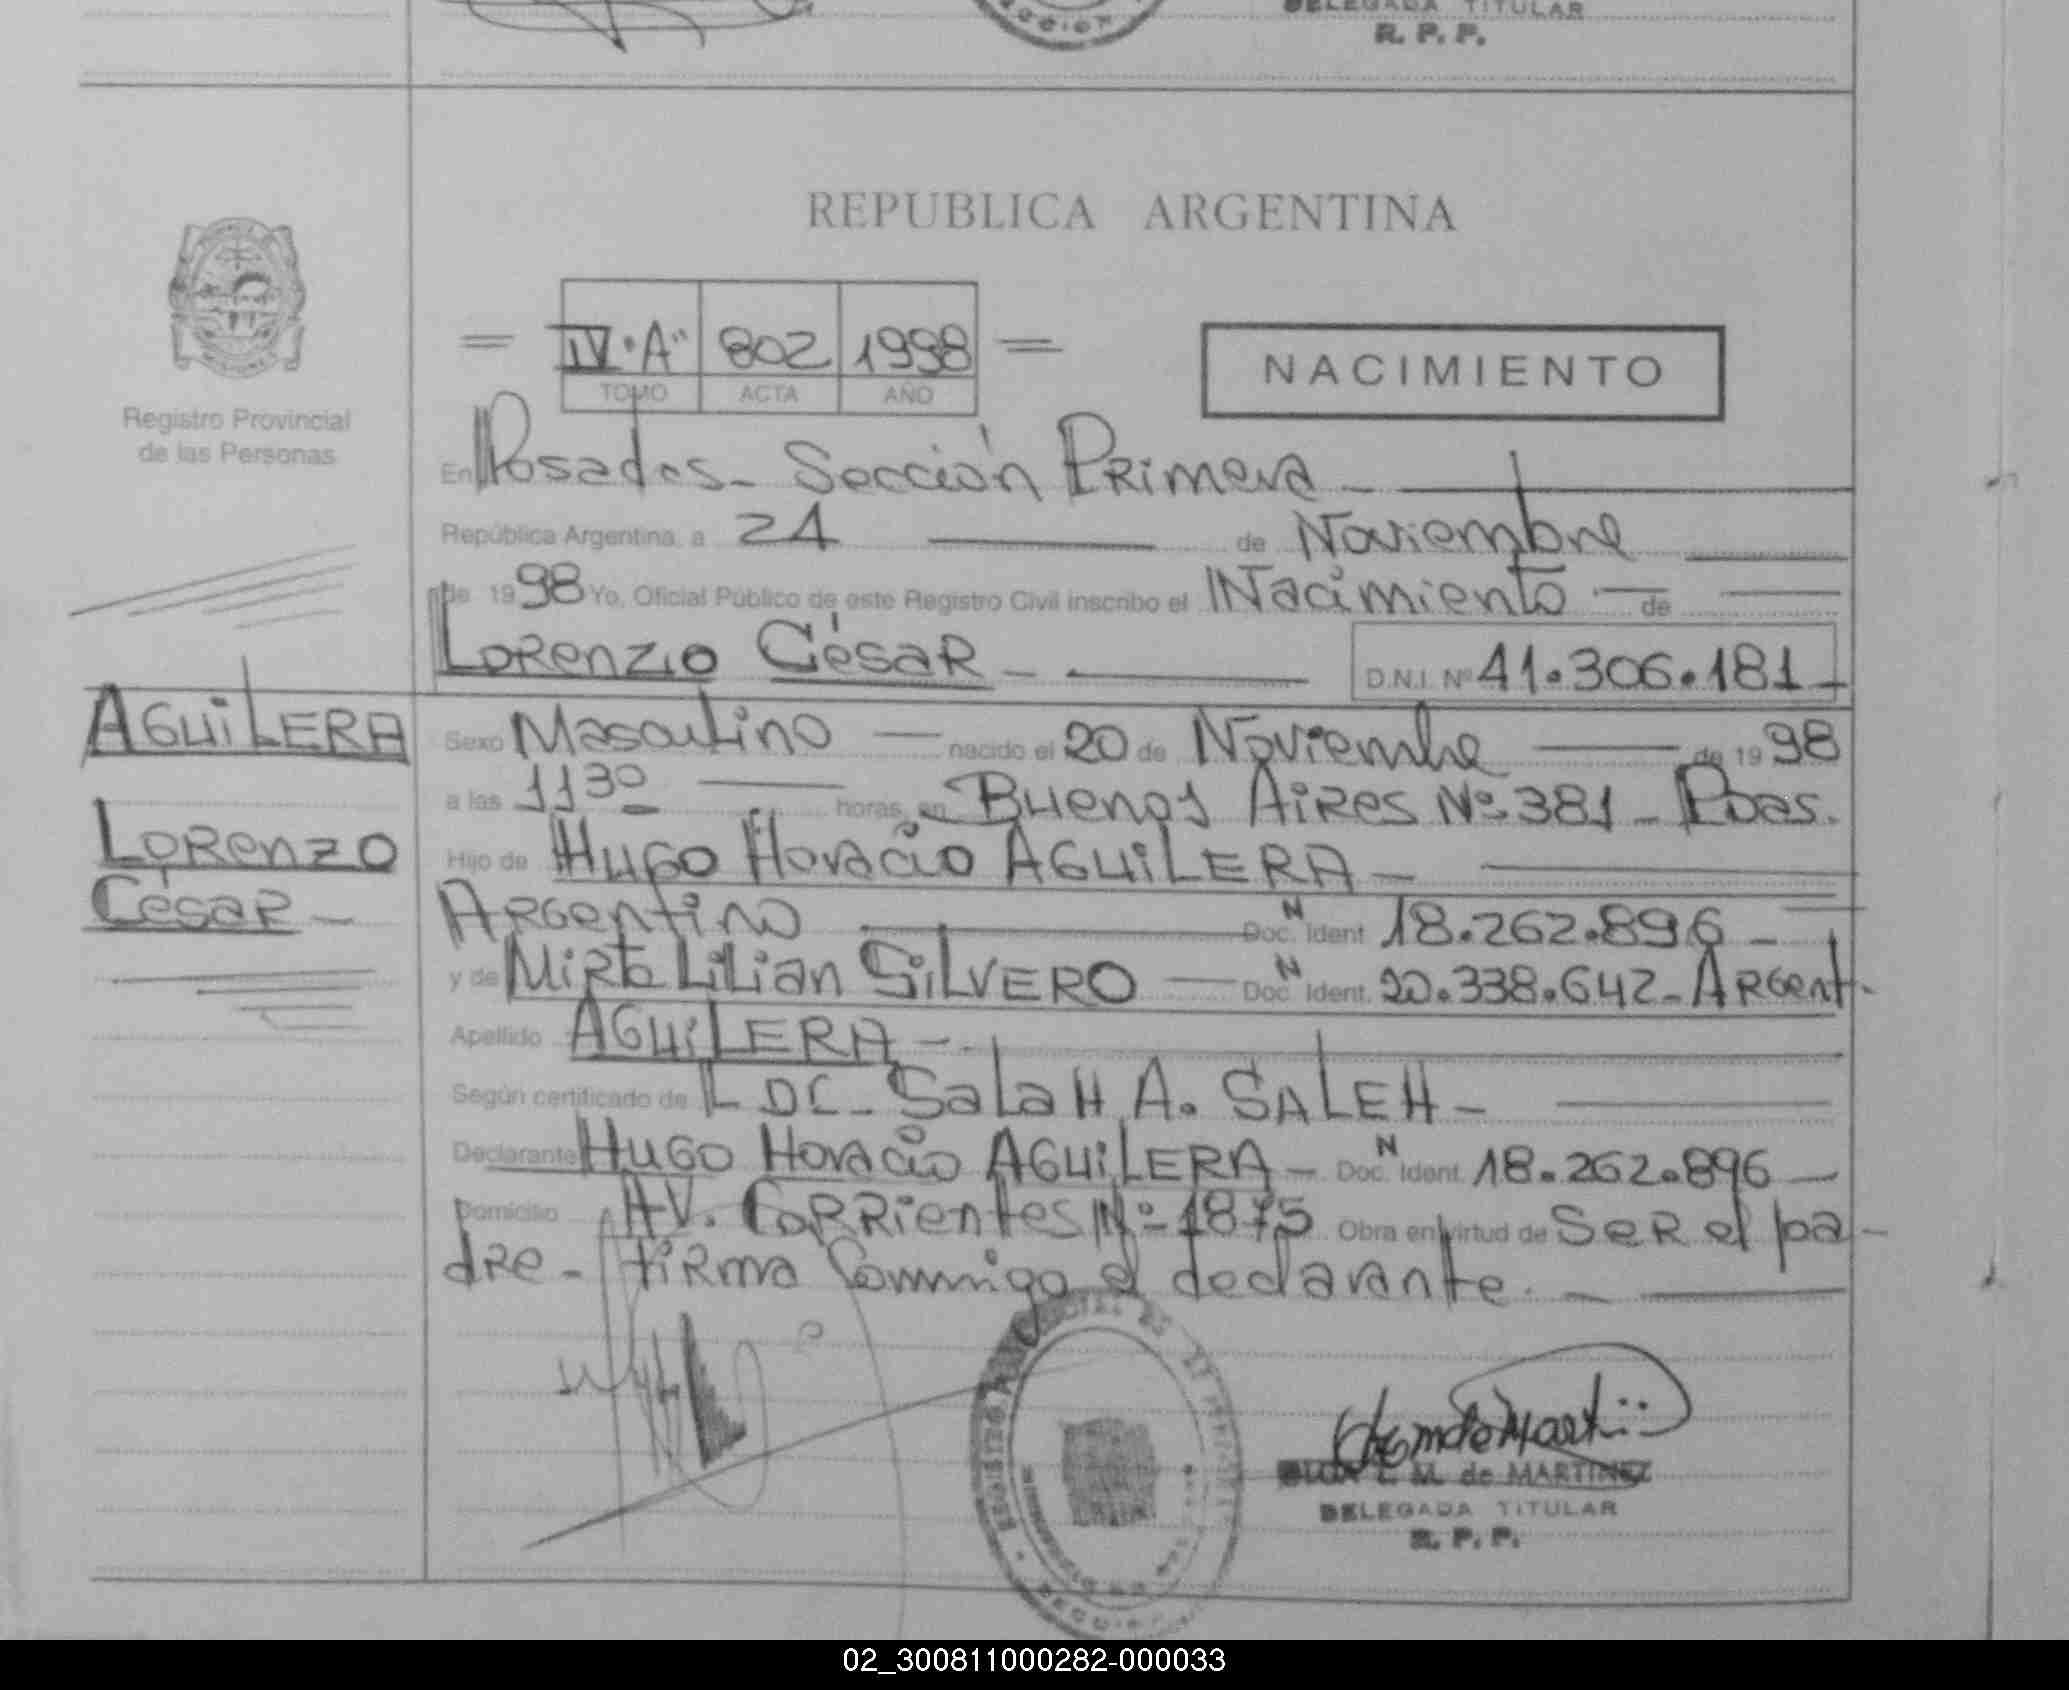 DELEGADA TITULAR
R. P. P.
REPUBLICA ARGENTINA
IV "A" 802 1998
TOMO ACTA AÑO
NACIMIENTO
Registro Provincial
de las Personas
En Posadas - Sección Primera -
República Argentina, a 24 de Noviembre
de 1998 Yo, Oficial Público de este Registro Civil inscribo el Nacimiento de
Lorenzo César - D.N.I. Nº 41.306.181 -
AGUILERA
Lorenzo
César -
Sexo Masculino nacido el 20 de Noviembre de 1998
a las 1130 horas, en Buenos Aires Nº 381 - Pdas.
Hijo de Hugo Horacio AGUILERA -
Argentino Doc. N Ident 18.262.896 -
y de Mirta Lilian SILVERO - Doc. N Ident. 20.338.642 - Argent.
Apellido AGUILERA -
Según certificado de L DC - Salah A. SALEH -
Declarante Hugo Horacio AGUILERA - Doc. N Ident. 18.262.896 -
Domicilio AV. Corrientes Nº 1875 Obra en virtud de ser el pa-
dre - firma conmigo el declarante. -
L. M. de MARTINEZ
DELEGADA TITULAR
R. P. P.
02_300811000282-000033